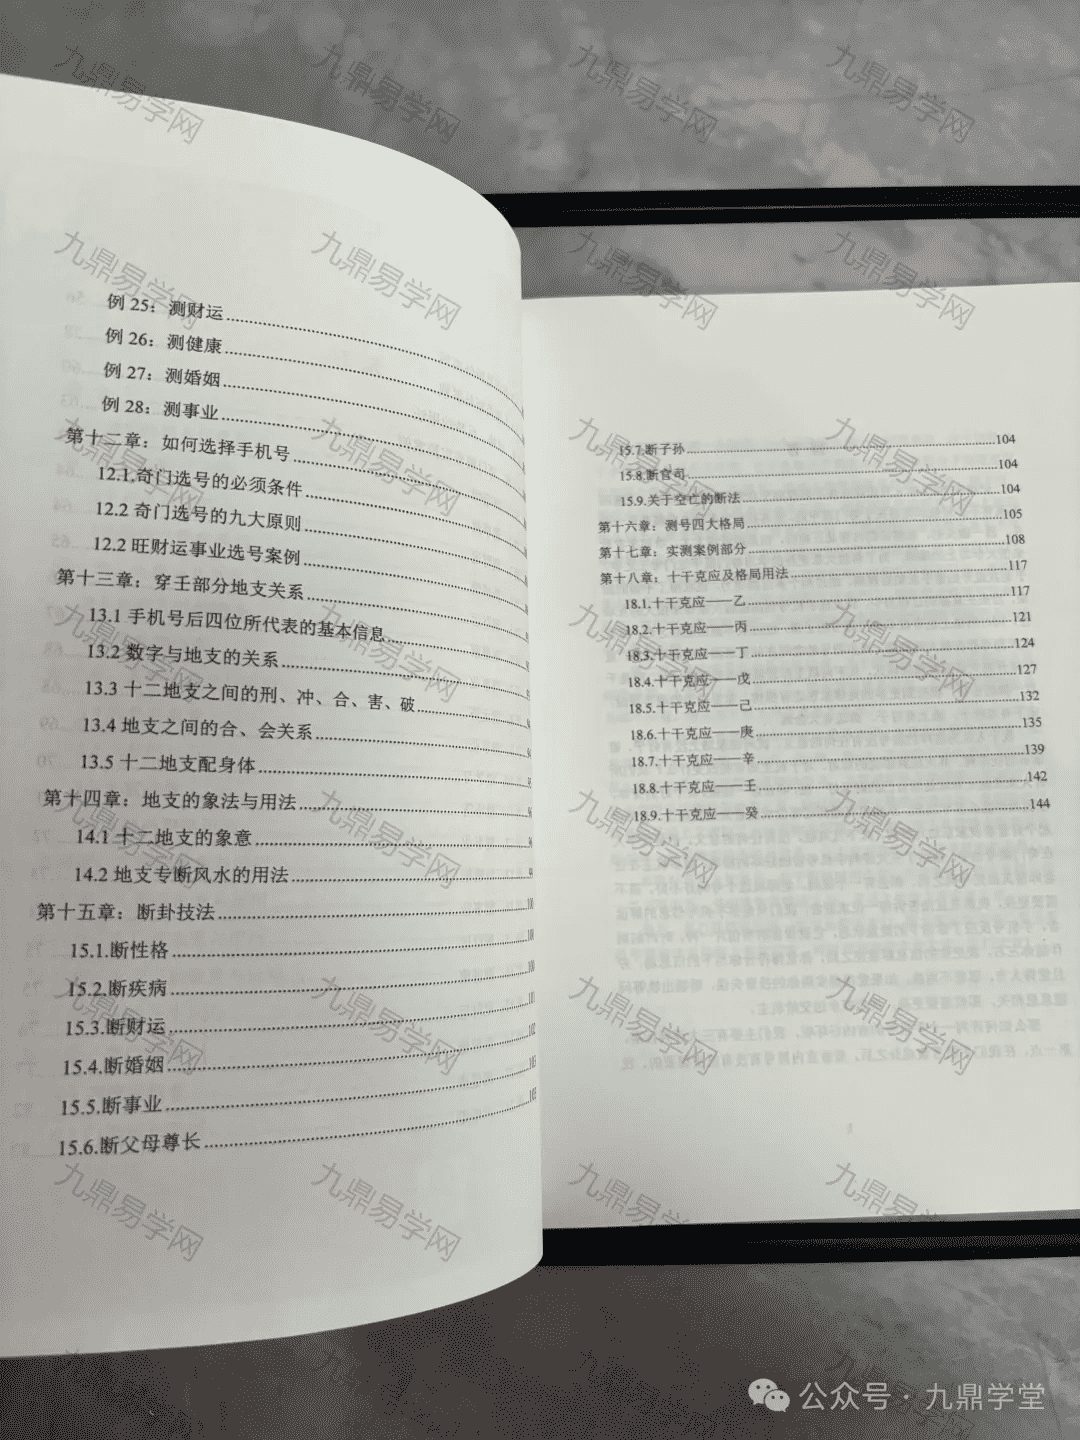 例 25：测财运
例 26：测健康
例 27：测婚姻
例 28：测事业
第十二章：如何选择手机号
12.1.奇门选号的必须条件
12.2 奇门选号的九大原则
12.2 旺财运事业选号案例
第十三章：穿壬部分地支关系
13.1 手机号后四位所代表的基本信息
13.2 数字与地支的关系
13.3 十二地支之间的刑、冲、合、害、破
13.4 地支之间的合、会关系
13.5 十二地支配身体
第十四章：地支的象法与用法
14.1 十二地支的象意
14.2 地支专断风水的用法
第十五章：断卦技法
15.1.断性格
15.2.断疾病
15.3.断财运
15.4.断婚姻
15.5.断事业
15.6.断父母尊长
15.7.断子孙 104
15.8.断官司 104
15.9.关于空亡的断法 104
第十六章：测号四大格局 105
第十七章：实测案例部分 108
第十八章：十干克应及格局用法 117
18.1.十干克应——乙 117
18.2.十干克应——丙 121
18.3.十干克应——丁 124
18.4.十干克应——戊 127
18.5.十干克应——己 132
18.6.十干克应——庚 135
18.7.十干克应——辛 139
18.8.十干克应——壬 142
18.9.十干克应——癸 144
九鼎易学网
公众号 · 九鼎学堂